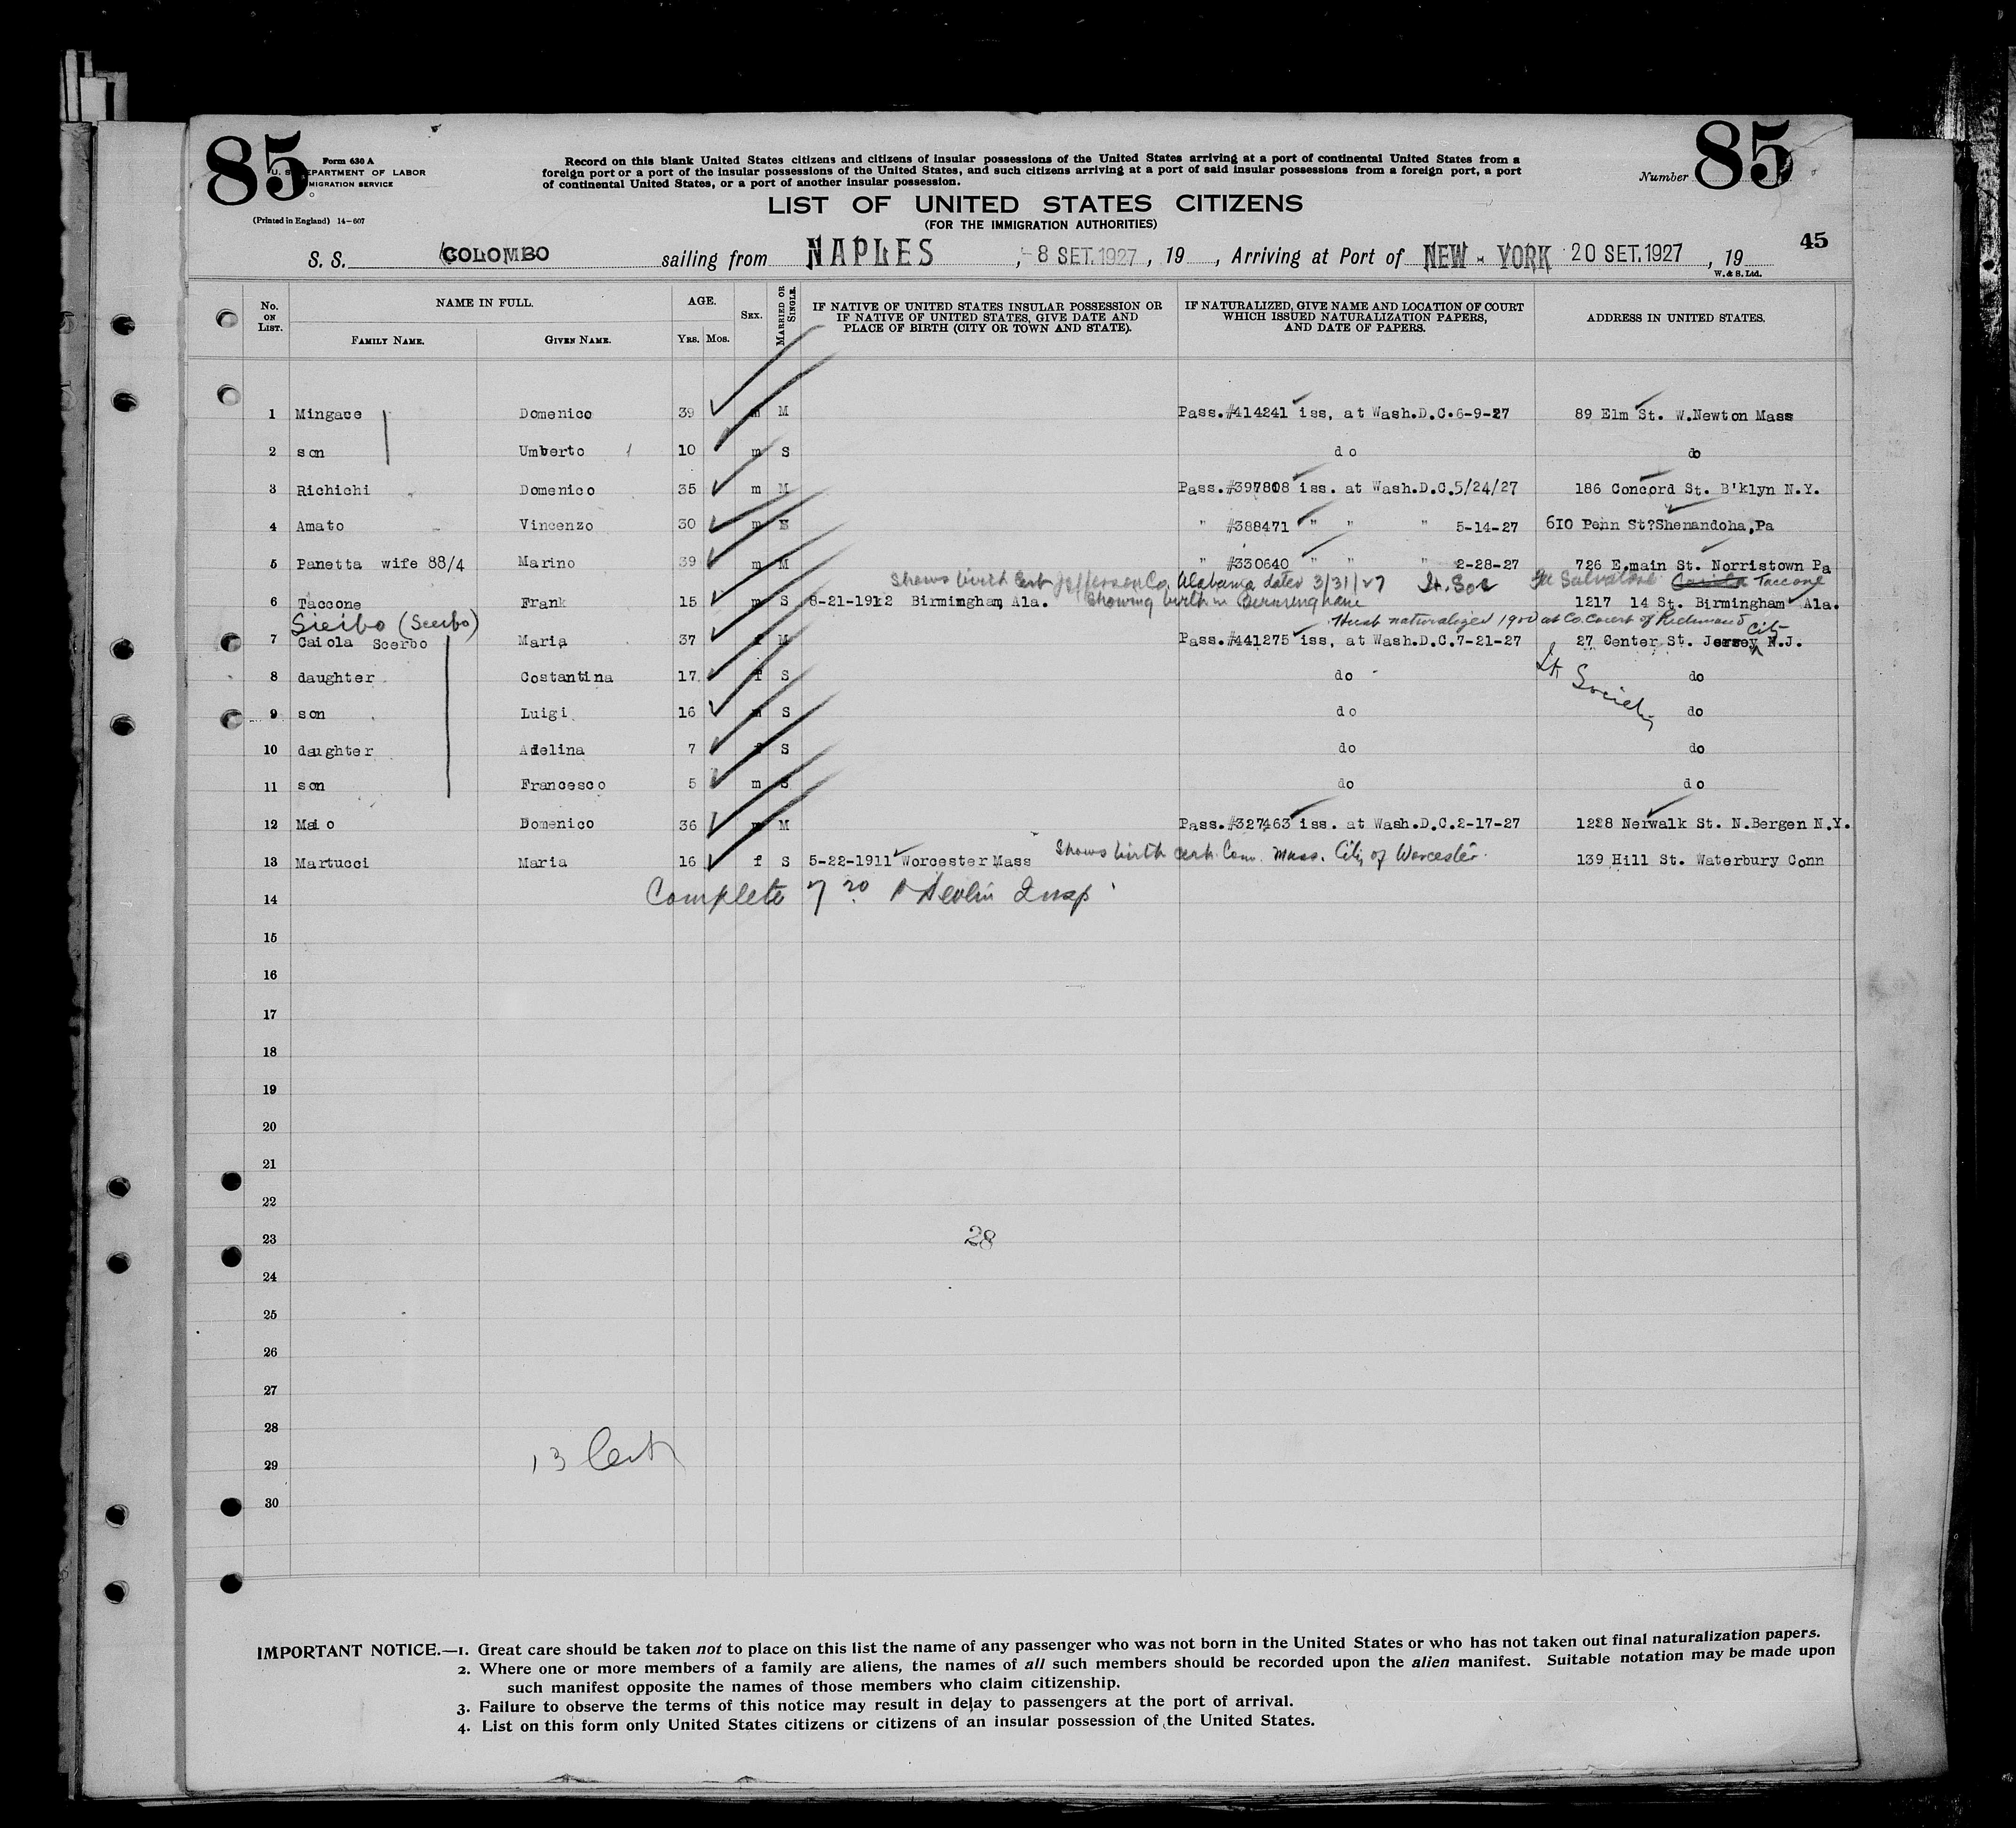 85
Form 630 A
U. S. DEPARTMENT OF LABOR
IMMIGRATION SERVICE
(Printed in England) 14-607
Record on this blank United States citizens and citizens of insular possessions of the United States arriving at a port of continental United States from a
foreign port or a port of the insular possessions of the United States, and such citizens arriving at a port of said insular possessions from a foreign port, a port
of continental United States, or a port of another insular possession.
Number 85
LIST OF UNITED STATES CITIZENS
(FOR THE IMMIGRATION AUTHORITIES)
45
S. S. COLOMBO sailing from NAPLES , -8 SET.1927 , 19 , Arriving at Port of NEW - YORK 20 SET.1927 , 19
W. & S. Ltd.
No. ON LIST. NAME IN FULL. FAMILY NAME. GIVEN NAME. AGE. YRS. MOS. SEX. MARRIED OR SINGLE. IF NATIVE OF UNITED STATES INSULAR POSSESSION OR IF NATIVE OF UNITED STATES, GIVE DATE AND PLACE OF BIRTH (CITY OR TOWN AND STATE). IF NATURALIZED, GIVE NAME AND LOCATION OF COURT WHICH ISSUED NATURALIZATION PAPERS, AND DATE OF PAPERS. ADDRESS IN UNITED STATES.
1 Mingace Domenico 39 m M Pass.#414241 iss. at Wash.D.C.6-9-27 89 Elm St. W.Newton Mass
2 son Umberto 10 m S do do
3 Richichi Domenico 35 m M Pass.#397808 iss. at Wash.D.C.5/24/27 186 Concord St. B'klyn N.Y.
4 Amato Vincenzo 30 m " #388471 " " " 5-14-27 610 Penn St?Shenandoha,Pa
5 Panetta wife 88/4 Marino 39 m M " #330640 " " " 2-28-27 726 E.main St. Norristown Pa
Shows birth Cert Jefferson Co, Alabama dated 3/31/27 It. Soc Salvatore Taccone
6 Taccone Frank 15 m S 8-21-1912 Birmingham, Ala. Showing birth in Birmingham 1217 14 St. Birmingham Ala.
Scerbo (Scerbo) Husb naturalized 1900 at Co. Court of Richmond
7 Caiola Scerbo Maria 37 f M Pass.#441275 iss. at Wash.D.C.7-21-27 27 Center St. Jersey City N.J.
8 daughter Costantina 17 f S do do
It Society
9 son Luigi 16 m S do do
10 daughter Adelina 7 f S do do
11 son Francesco 5 m S do do
12 Maio Domenico 36 m M Pass.#327463 iss. at Wash.D.C.2-17-27 1228 Nerwalk St. N.Bergen N.Y.
13 Martucci Maria 16 f S 5-22-1911 Worcester Mass Shows birth cert. Com. Mass. City of Worcester. 139 Hill St. Waterbury Conn
14 Complete 7 20 Devlin Insp
15
16
17
18
19
20
21
22
23 28
24
25
26
27
28
13 Cert
29
30
IMPORTANT NOTICE.—1. Great care should be taken not to place on this list the name of any passenger who was not born in the United States or who has not taken out final naturalization papers.
2. Where one or more members of a family are aliens, the names of all such members should be recorded upon the alien manifest. Suitable notation may be made upon
such manifest opposite the names of those members who claim citizenship.
3. Failure to observe the terms of this notice may result in delay to passengers at the port of arrival.
4. List on this form only United States citizens or citizens of an insular possession of the United States.